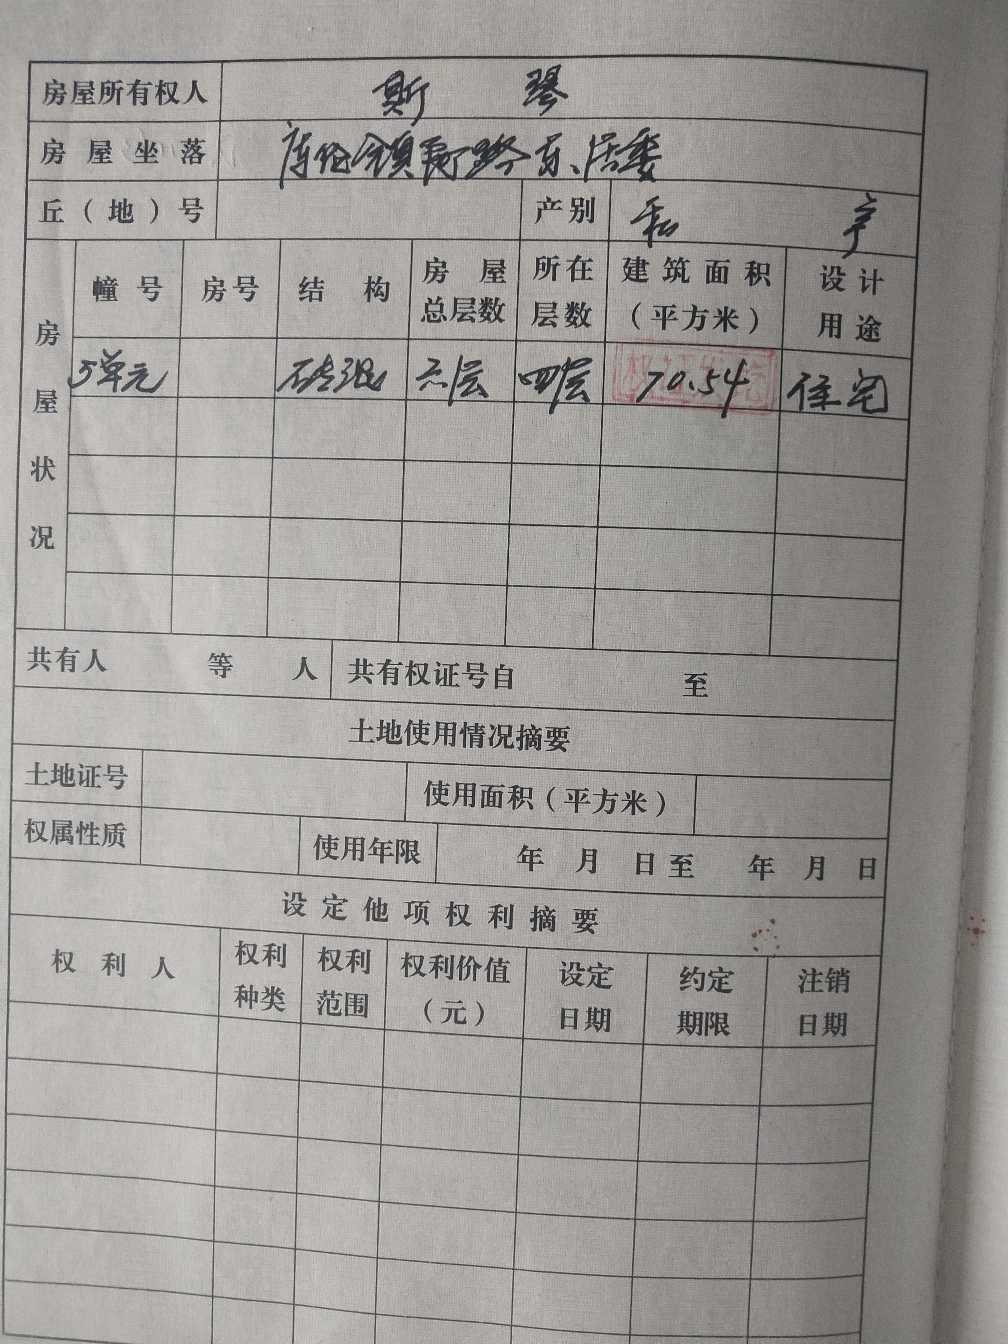 房屋所有权人 斯琴
房屋坐落 库伦镇 路东、居委
丘（地）号 产别 私产
房屋状况
幢号 房号 结构 房屋总层数 所在层数 建筑面积（平方米） 设计用途
5单元 砖混 六层 四层 70.54 住宅
共有人 等 人 共有权证号自 至
土地使用情况摘要
土地证号 使用面积（平方米）
权属性质 使用年限 年 月 日至 年 月 日
设定他项权利摘要
权利人 权利种类 权利范围 权利价值（元） 设定日期 约定期限 注销日期